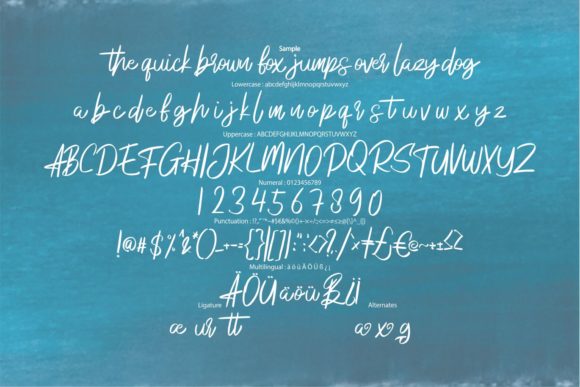 Sample
the quick brown fox jumps over lazy dog
Lowercase : abcdefghijklmnopqrstuvwxyz
a b c d e f g h i j k l m n o p q r s t u v w x y z
Uppercase : ABCDEFGHIJKLMNOPQRSTUVWXYZ
ABCDEFGHIJKLMNOPQRSTUVWXYZ
Numeral : 0123456789
1234567890
Multilingual : ä ö ü Ä Ö Ü ß ¿ ¡
ÄÖÜäöü
Ligature
Alternates
æ ur tt
a o x g